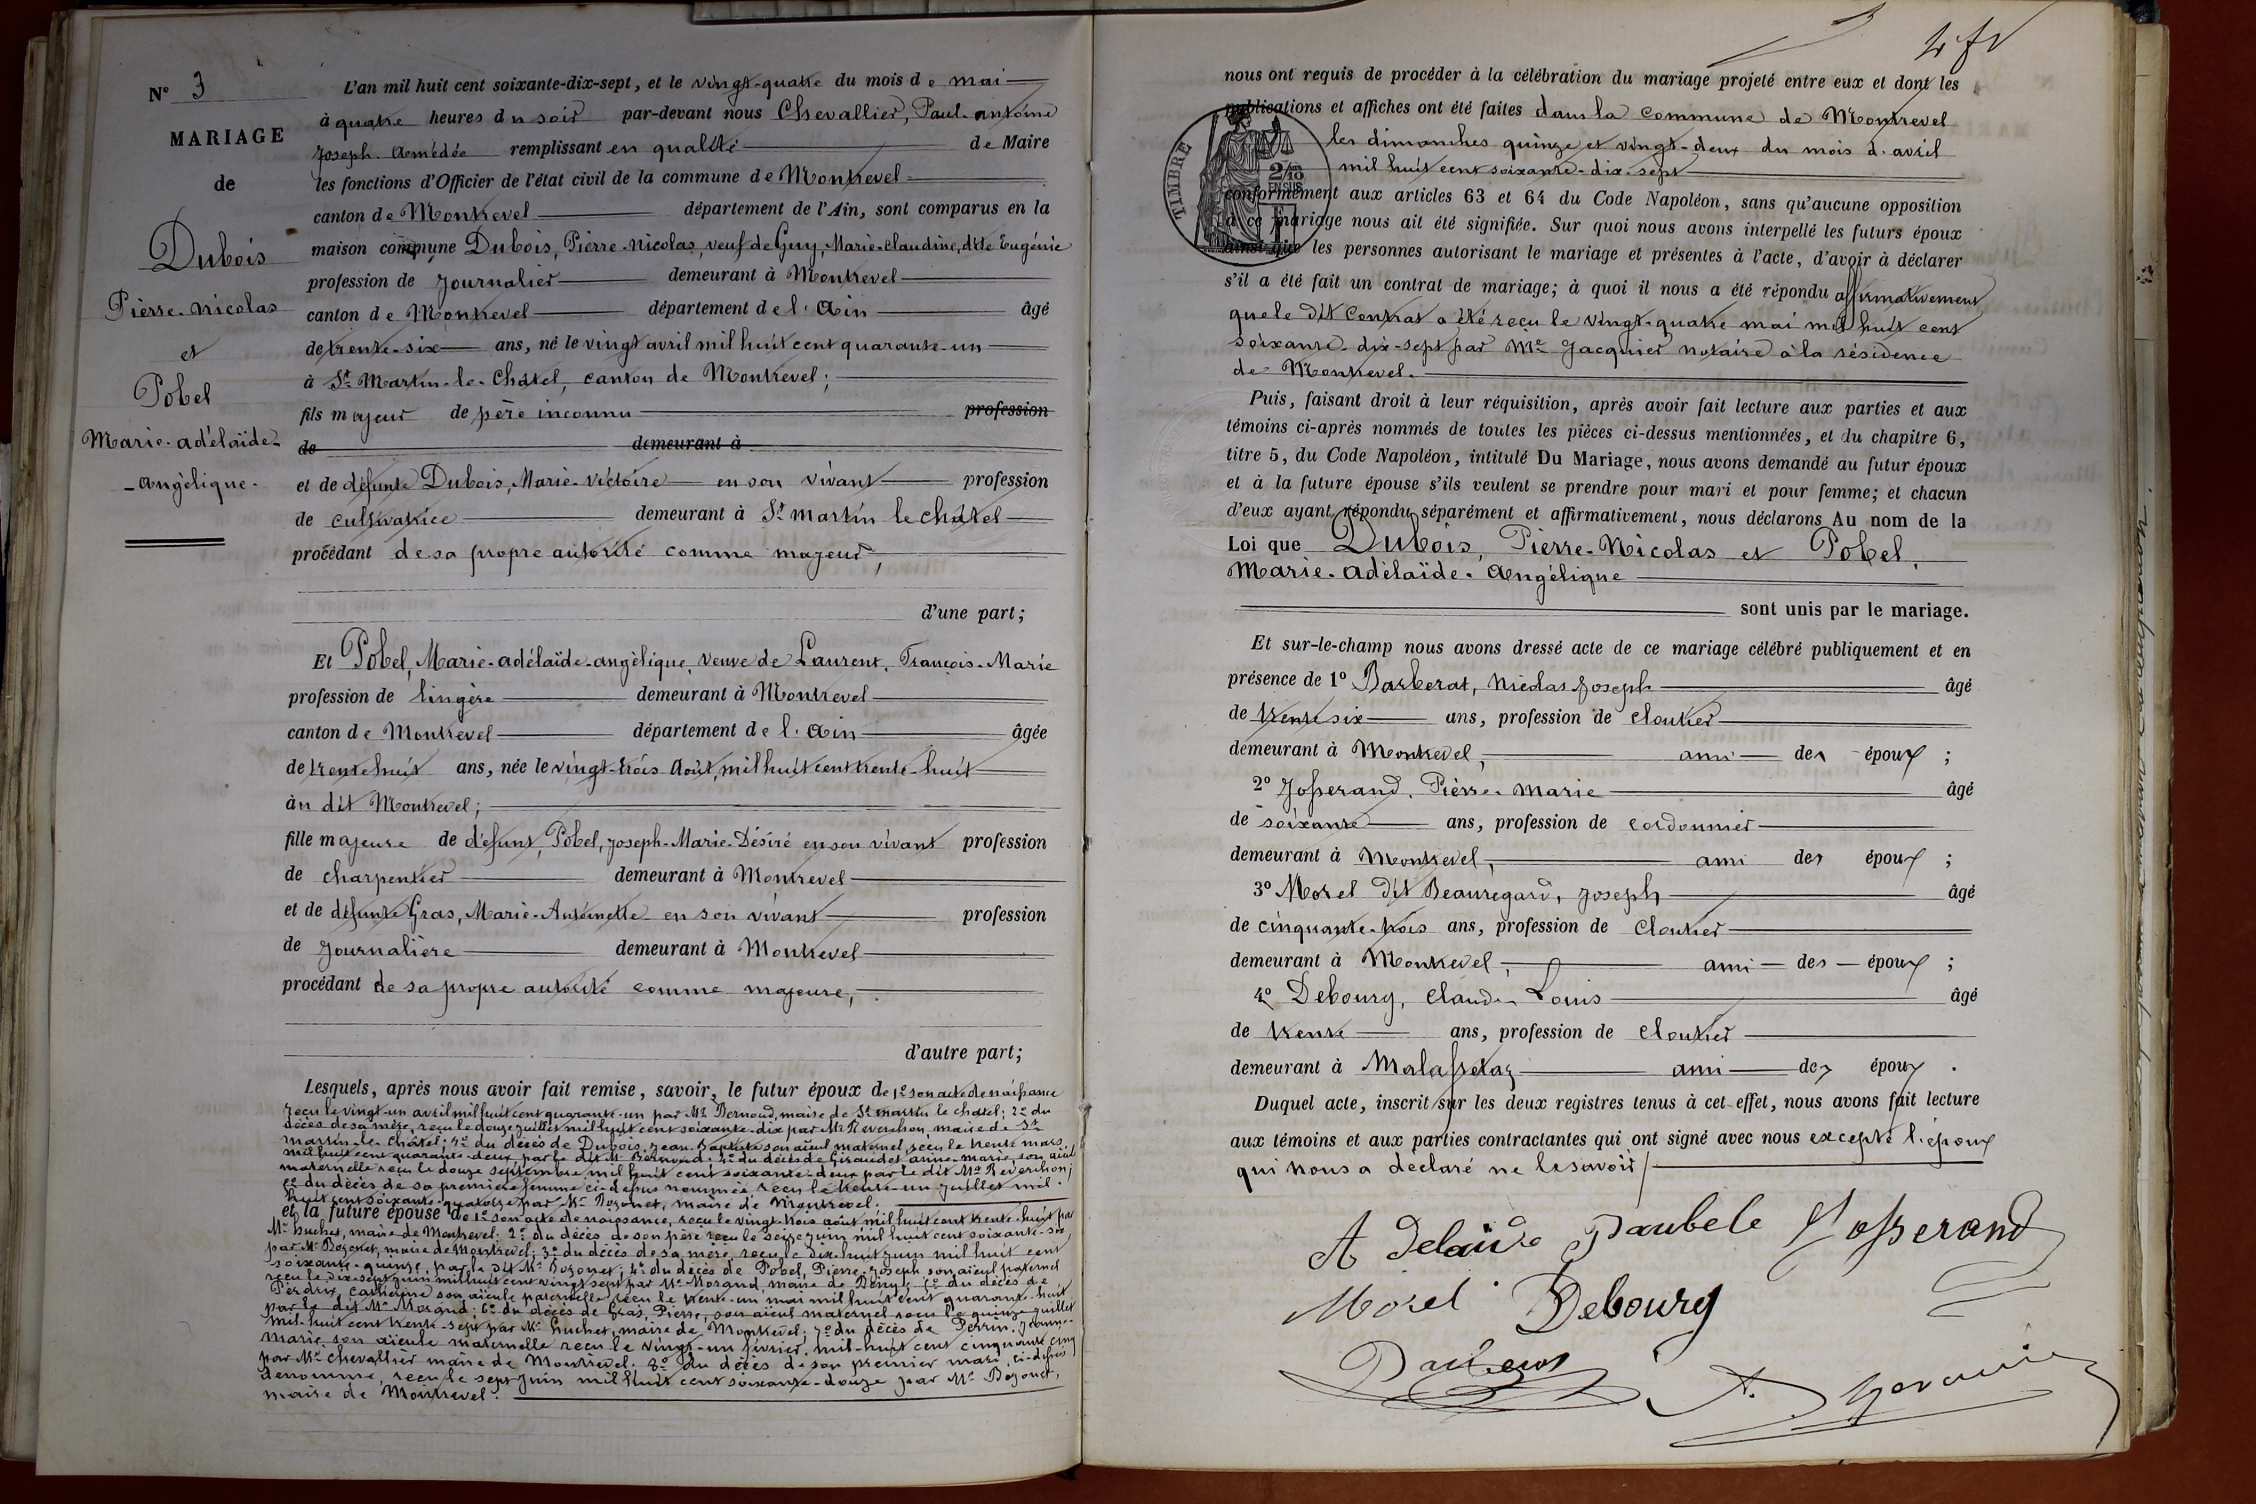 N° 3
MARIAGE
de
Dubois
Pierre-Nicolas
et
Pobel
Marie-adélaïde-
-angélique-
L'an mil huit cent soixante-dix-sept, et le vingt-quatre du mois de mai
à quatre heures du soir par-devant nous Chevallier, Paul-antoine
Joseph-Amédée remplissant en qualité de Maire
les fonctions d'Officier de l'état civil de la commune de Montrevel
canton de Montrevel département de l'Ain, sont comparus en la
maison commune Dubois, Pierre-Nicolas, veuf de Gery, Marie-Claudine, dite Eugénie
profession de journalier demeurant à Montrevel
canton de Montrevel département de l'Ain âgé
de trente-six ans, né le vingt avril mil huit cent quarante-un
à St Martin-le-Châtel, canton de Montrevel;
fils majeur de père inconnu profession
de demeurant à
et de défunte Dubois, Marie-Victoire en son vivant profession
de cultivatrice demeurant à St Martin le Châtel
procédant de sa propre autorité comme majeur,
d'une part;
Et Pobel, Marie-adélaïde-angélique, veuve de Laurent, François-Marie
profession de lingère demeurant à Montrevel
canton de Montrevel département de l'Ain âgée
de trente huit ans, née le vingt-trois août, mil huit cent trente-huit
à u dit Montrevel;
fille majeure de défunt, Pobel, Joseph-Marie-Désiré en son vivant profession
de charpentier demeurant à Montrevel
et de défunte Gras, Marie-Antoinette en son vivant profession
de journalière demeurant à Montrevel
procédant de sa propre autorité comme majeure,
d'autre part;
Lesquels, après nous avoir fait remise, savoir, le futur époux de 1° son acte de naissance
reçu le vingt-un avril mil huit cent quarante-un par Mr Bernoud, maire de St Martin le Châtel; 2° du
décès de sa mère, reçu le douze juillet mil huit cent soixante-dix par Mr Reverchon, maire de St
Martin-le-Châtel; 3° du décès de Dubois, Jean-Baptiste son aïeul maternel, reçu le trente mars
mil huit cent quarante-deux par le dit Mr Bernoud; 4° du décès de Giraudet anne-marie, son aïeule
maternelle reçu le douze septembre mil huit cent soixante-deux par le dit Mr Reverchon;
5° du décès de sa première femme ci-dessus nommée, reçu le trente-un juillet mil
huit cent soixante-quatorze par Mr Bozonet, maire de Montrevel.
et la future épouse de 1° son acte de naissance, reçu le vingt-trois août mil huit cent trente-huit par
Mr Huchet, maire de Montrevel; 2° du décès de son père reçu le seize juin mil huit cent soixante-six,
par Mr Bozonet, maire de Montrevel; 3° du décès de sa mère, reçu le dix-huit juin mil huit cent
soixante-quinze, par le dit Mr Bozonet; 4° du décès de Pobel, Pierre-Joseph son aïeul paternel
reçu le dix-sept juin mil huit cent vingt sept par Mr Morand, maire de Bény; 5° du décès de
Perdrix, Catherine son aïeule paternelle reçu le trente-un mai mil huit cent quarante-huit
par le dit Mr Morand; 6° du décès de Gras, Pierre, son aïeul maternel reçu le quinze juillet
mil-huit cent trente-sept par Mr Huchet, maire de Montrevel; 7° du décès de Perrin, Jeanne-
Marie son aïeule maternelle reçu le vingt-un février, mil-huit cent cinquante cinq
par Mr Chevallier maire de Montrevel; 8° du décès de son premier mari, ci-dessus
dénommé, reçu le sept juin mil huit cent soixante-douze par Mr Bozonet,
maire de Montrevel.
4 fr
nous ont requis de procéder à la célébration du mariage projeté entre eux et dont les
publications et affiches ont été faites dans la commune de Montrevel
les dimanches quinze et vingt-deux du mois d'avril
mil huit cent soixante-dix-sept
TIMBRE
2/10
EN SUS
conformément aux articles 63 et 64 du Code Napoléon, sans qu'aucune opposition
à ce mariage nous ait été signifiée. Sur quoi nous avons interpellé les futurs époux
ainsi que les personnes autorisant le mariage et présentes à l'acte, d'avoir à déclarer
s'il a été fait un contrat de mariage; à quoi il nous a été répondu affirmativement
que le dit Contrat a été reçu le vingt-quatre mai mil huit cent
soixante-dix-sept par Me Jacquier notaire à la résidence
de Montrevel.
Puis, faisant droit à leur réquisition, après avoir fait lecture aux parties et aux
témoins ci-après nommés de toutes les pièces ci-dessus mentionnées, et du chapitre 6,
titre 5, du Code Napoléon, intitulé Du Mariage, nous avons demandé au futur époux
et à la future épouse s'ils veulent se prendre pour mari et pour femme; et chacun
d'eux ayant répondu séparément et affirmativement, nous déclarons Au nom de la
Loi que Dubois, Pierre-Nicolas et Pobel,
Marie-adélaïde-Angélique
sont unis par le mariage.
Et sur-le-champ nous avons dressé acte de ce mariage célébré publiquement et en
présence de 1° Barberat, Nicolas Joseph âgé
de trente six ans, profession de cloutier
demeurant à Montrevel, ami des époux ;
2° Josserand, Pierre-Marie âgé
de soixante ans, profession de cordonnier
demeurant à Montrevel, ami des époux ;
3° Morel dit Beauregard, Joseph âgé
de cinquante-trois ans, profession de cloutier
demeurant à Montrevel, ami des époux ;
4° Debourg, Claude-Louis âgé
de trente ans, profession de cloutier
demeurant à Malafretaz ami des époux .
Duquel acte, inscrit sur les deux registres tenus à cet effet, nous avons fait lecture
aux témoins et aux parties contractantes qui ont signé avec nous excepté l'époux
qui nous a déclaré ne le savoir
Adelaide Paubele Josserand
Morel Debourg